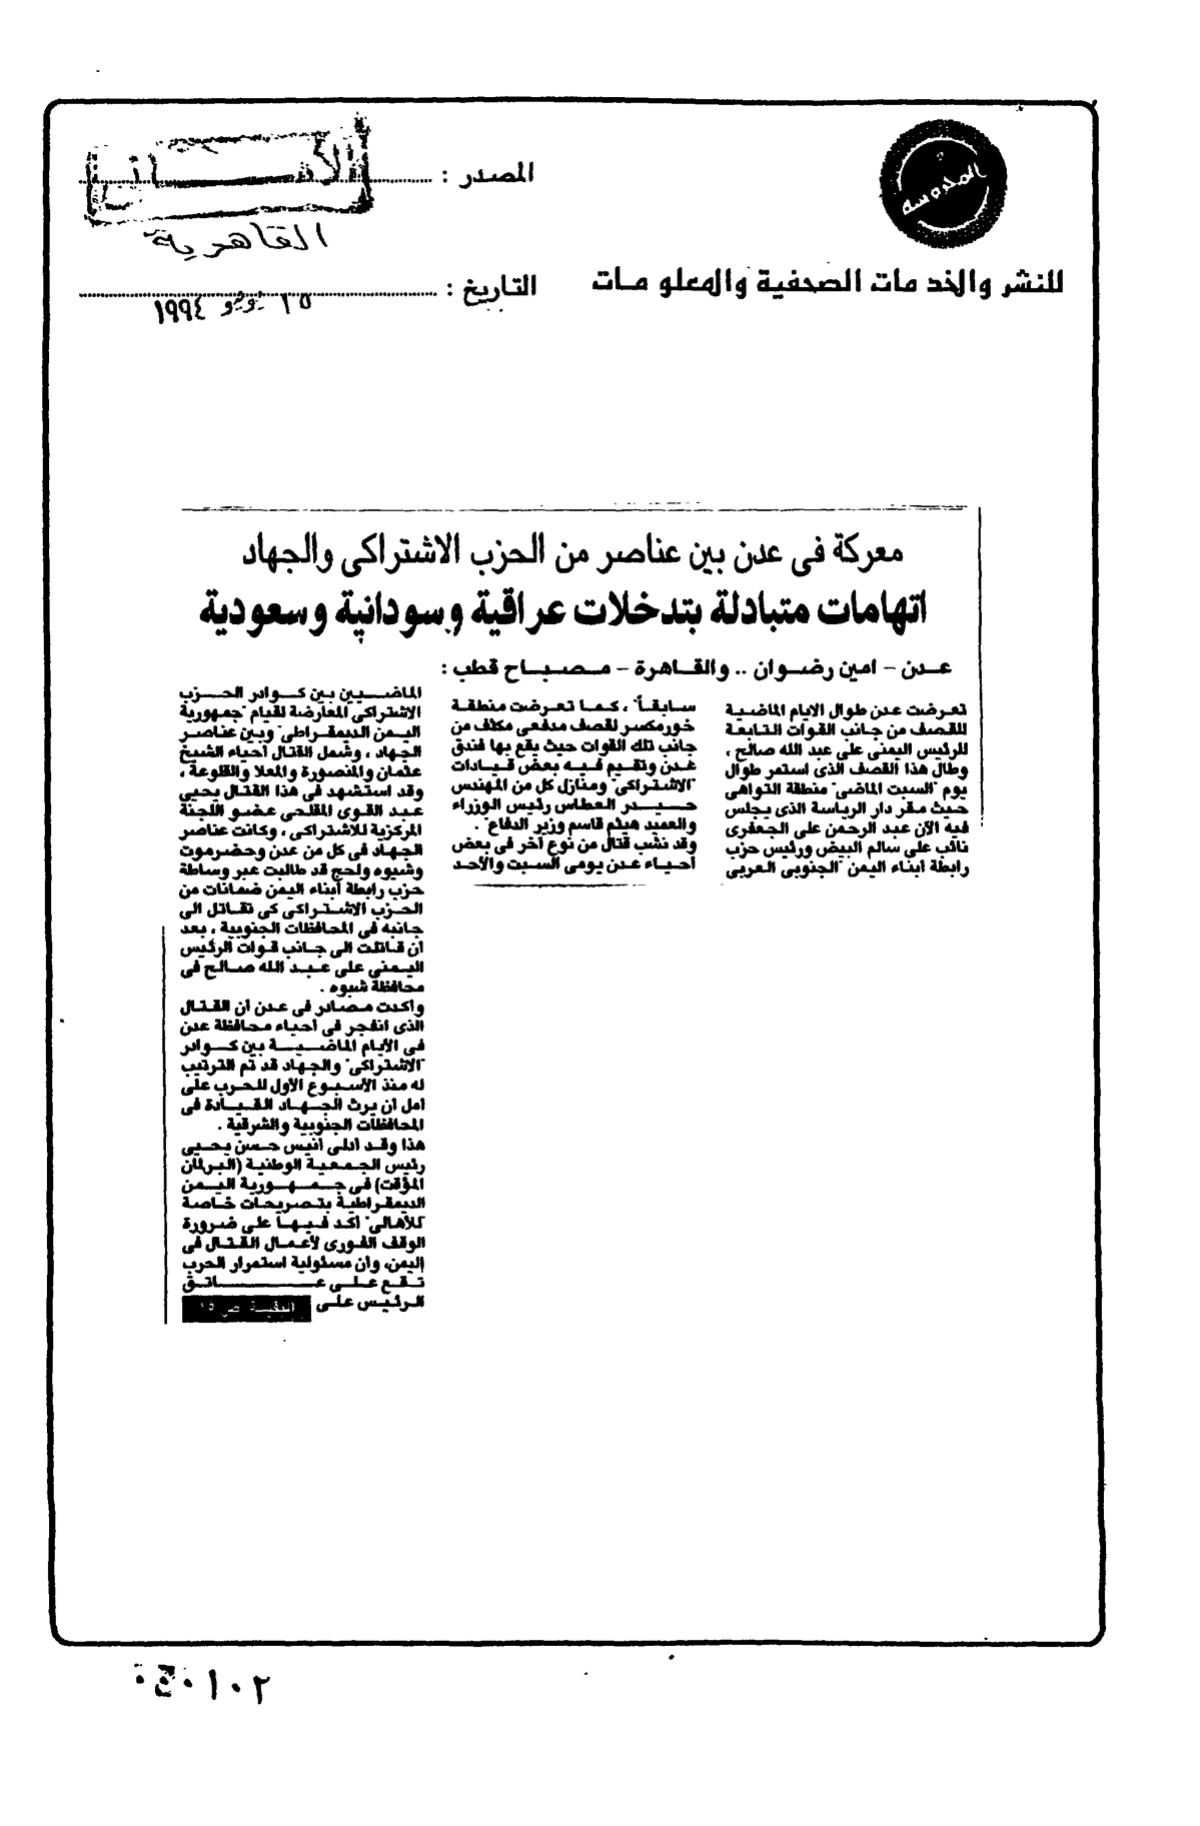 المحروسة
للنشر والخدمات الصحفية والمعلومات
المصدر :
الأهالى
القاهرية
التاريخ :
١٥ يونيو ١٩٩٤
معركة فى عدن بين عناصر من الحزب الاشتراكى والجهاد
اتهامات متبادلة بتدخلات عراقية وسودانية وسعودية
عدن - امين رضوان .. والقاهرة - مصباح قطب :
تعرضت عدن طوال الايام الماضية
للقصف من جانب القوات التابعة
للرئيس اليمنى على عبد الله صالح ،
وطال هذا القصف الذى استمر طوال
يوم "السبت الماضى" منطقة التواهى
حيث مقر دار الرياسة الذى يجلس
فيه الآن عبد الرحمن على الجعفرى
نائب على سالم البيض ورئيس حزب
رابطة ابناء اليمن "الجنوبى العربى
سابقاً" ، كما تعرضت منطقة
خورمكسر لقصف مدفعى مكثف من
جانب تلك القوات حيث يقع بها فندق
عدن وتقيم فيه بعض قيادات
"الاشتراكى" ومنازل كل من المهندس
حيدر العطاس رئيس الوزراء
والعميد هيثم قاسم وزير الدفاع" .
وقد نشب قتال من نوع آخر فى بعض
أحياء عدن يومى السبت والأحد
الماضيين بين كوادر الحزب
الاشتراكى المعارضة لقيام "جمهورية
اليمن الديمقراطى" وبين عناصر
الجهاد ، وشمل القتال أحياء الشيخ
عثمان والمنصورة والمعلا والقلوعة ،
وقد استشهد فى هذا القتال يحيى
عبد القوى المفلحى عضو اللجنة
المركزية للاشتراكى ، وكانت عناصر
الجهاد فى كل من عدن وحضرموت
وشبوه ولحج قد طالبت عبر وساطة
حزب رابطة أبناء اليمن ضمانات من
الحزب الاشتراكى كى تقاتل الى
جانبه فى المحافظات الجنوبية ، بعد
ان قاتلت الى جانب قوات الرئيس
اليمنى على عبد الله صالح فى
محافظة شبوه .
وأكدت مصادر فى عدن أن القتال
الذى انفجر فى أحياء محافظة عدن
فى الأيام الماضية بين كوادر
"الاشتراكى" والجهاد قد تم الترتيب
له منذ الأسبوع الأول للحرب على
أمل أن يرث الجهاد القيادة فى
المحافظات الجنوبية والشرقية .
هذا وقد أدلى أنيس حسن يحيى
رئيس الجمعية الوطنية (البرلمان
المؤقت) فى جمهورية اليمن
الديمقراطية بتصريحات خاصة
"للأهالى" أكد فيها على ضرورة
الوقف الفورى لأعمال القتال فى
اليمن، وان مسئولية استمرار الحرب
تقع على عاتق
الرئيس على
البقية ص ١٥